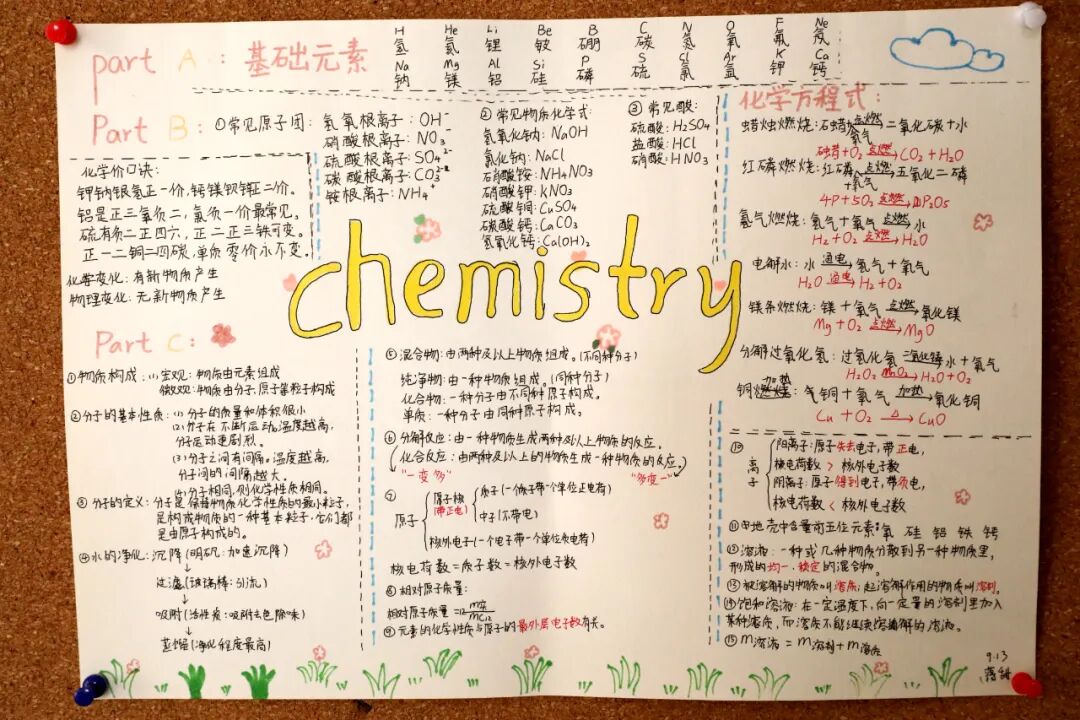 part A：基础元素
H He Li Be B C N O F Ne
氢 氦 锂 铍 硼 碳 氮 氧 氟 氖
Na Mg Al Si P S Cl Ar K Ca
钠 镁 铝 硅 磷 硫 氯 氩 钾 钙
Part B：
①常见原子团：氢氧根离子：OH⁻
硝酸根离子：NO₃⁻
硫酸根离子：SO₄²⁻
碳酸根离子：CO₃²⁻
铵根离子：NH₄⁺
化学价口诀：
钾钠银氢正一价，钙镁钡锌正二价。
铝是正三氧负二，氯负一价最常见。
硫有负二正四六，正二正三铁可变。
正一二铜二四碳，单质零价永不变。
化学变化：有新物质产生
物理变化：无新物质产生
②常见物质化学式：
氢氧化钠：NaOH
氯化钠：NaCl
硝酸铵：NH4NO3
硝酸钾：KNO3
硫酸铜：CuSO4
碳酸钙：CaCO3
氢氧化钙：Ca(OH)2
③常见酸：
硫酸：H2SO4
盐酸：HCl
硝酸：HNO3
化学方程式：
蜡烛燃烧：石蜡+氧气 点燃→ 二氧化碳+水
石蜡+O2 点燃→ CO2+H2O
红磷燃烧：红磷+氧气 点燃→ 五氧化二磷
4P+5O2 点燃→ 2P2O5
氢气燃烧：氢气+氧气 点燃→ 水
H2+O2 点燃→ H2O
电解水：水 通电→ 氢气+氧气
H2O 通电→ H2+O2
镁条燃烧：镁+氧气 点燃→ 氧化镁
Mg+O2 点燃→ MgO
分解过氧化氢：过氧化氢 二氧化锰→ 水+氧气
H2O2 MnO2→ H2O+O2
铜加热：铜+氧气 加热→ 氧化铜
Cu+O2 △→ CuO
chemistry
Part C：
①物质构成：(1)宏观：物质由元素组成
微观：物质由分子、原子等粒子构成
②分子的基本性质：(1)分子的质量和体积很小
(2)分子在不断运动，温度越高，
分子运动更剧烈。
(3)分子之间有间隔。温度越高，
分子间的间隔越大。
(4)分子相同，则化学性质相同。
③分子的定义：分子是保持物质化学性质的最小粒子，
是构成物质的一种基本粒子，它们都
是由原子构成的。
④水的净化：沉降(明矾：加速沉降)
↓
过滤(玻璃棒：引流)
↓
吸附(活性炭：吸附去色除味)
↓
蒸馏(净化程度最高)
⑤混合物：由两种及以上物质组成。(不同种分子)
纯净物：由一种物质组成。(同种分子)
化合物：一种分子由不同种原子构成。
单质：一种分子由同种原子构成。
⑥分解反应：由一种物质生成两种及以上物质的反应。
化合反应：由两种及以上的物质生成一种物质的反应。
"一变多" "多变一"
⑦原子 原子核(带正电) 质子(一个质子带一个单位正电荷)
中子(不带电)
核外电子(一个电子带一个单位负电荷)
核电荷数=质子数=核外电子数
⑧相对原子质量：
相对原子质量=
⑨元素的化学性质与原子的最外层电子数有关。
⑩离子 阳离子：原子失去电子，带正电，
核电荷数 > 核外电子数
阴离子：原子得到电子，带负电，
核电荷数 < 核外电子数
⑪地壳中含量前五位元素：氧 硅 铝 铁 钙
⑫溶液：一种或几种物质分散到另一种物质里，
形成的均一、稳定的混合物。
⑬被溶解的物质叫溶质；起溶解作用的物质叫溶剂。
⑭饱和溶液：在一定温度下，向一定量的溶剂里加入
某种溶质，而溶质不能继续溶解的溶液。
⑮m溶液=m溶剂+m溶质
9.13